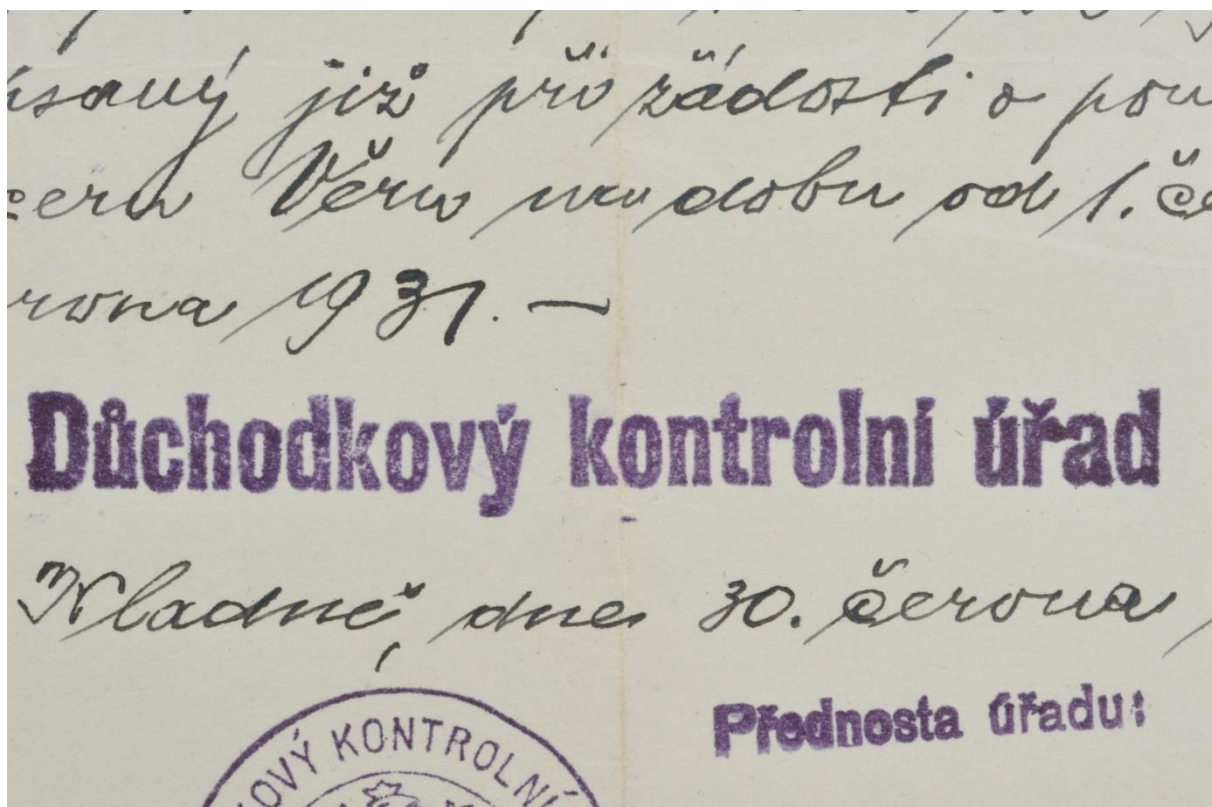 již při žádosti o
Věru na dobu od 1.
1931. —
Důchodkový kontrolní úřad
Kladně, dne 30. června
Přednosta úřadu:
KOVÝ KONTROLNÍ